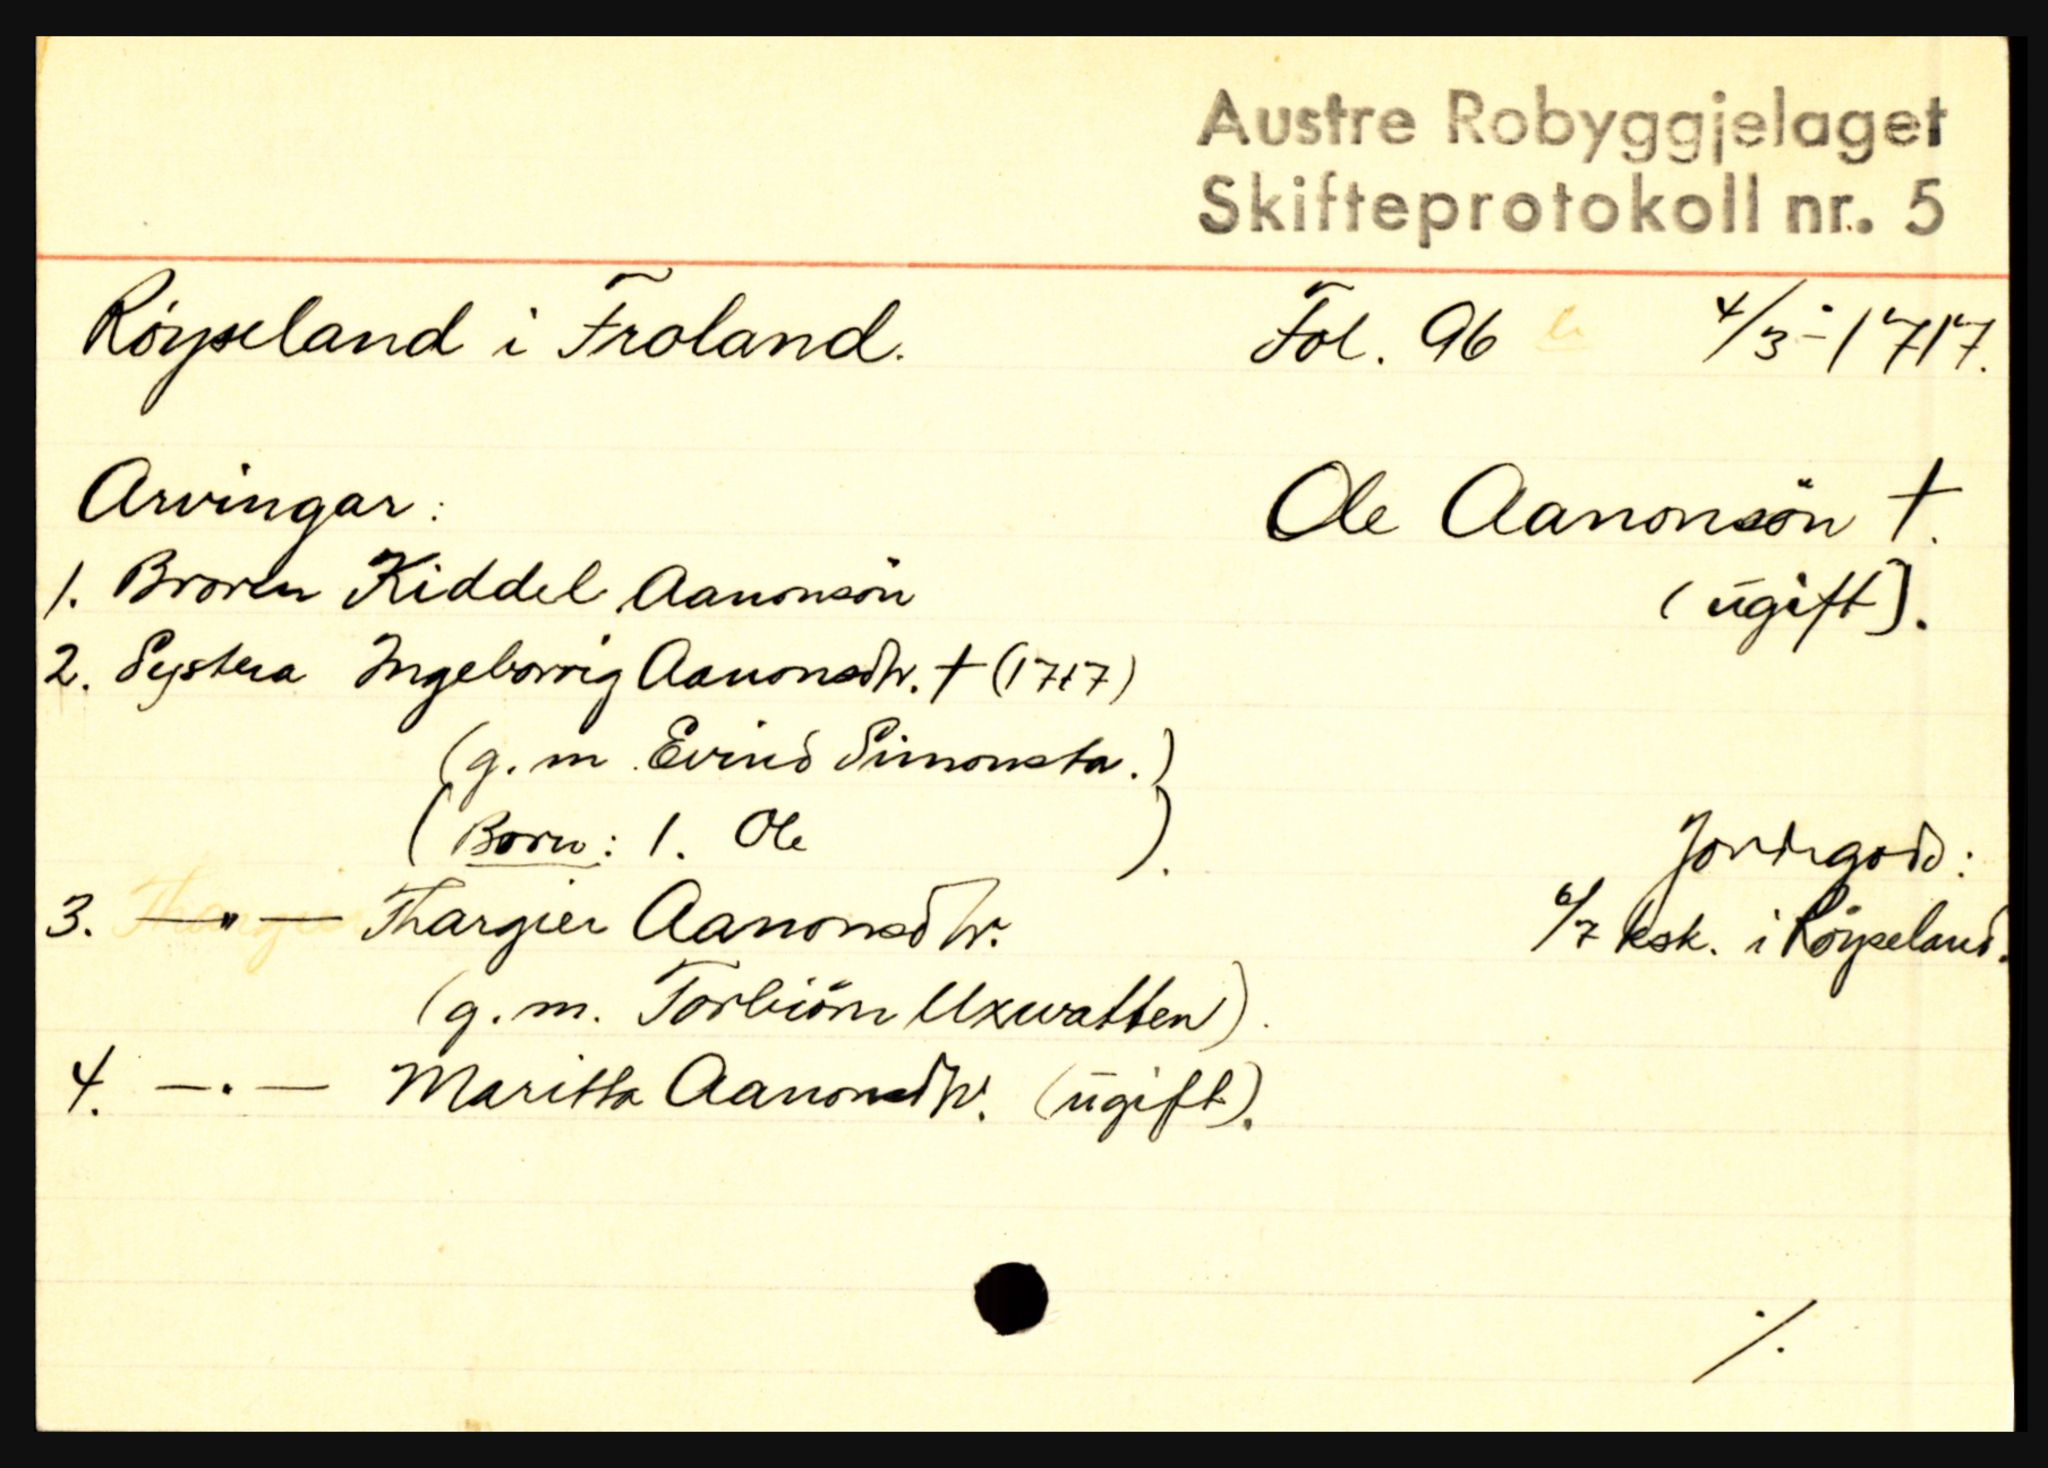 Austre Robyggjelaget
Skifteprotokoll nr. 5
Röyseland i Froland. Fol. 96 b 4/3-1717.
Arvingar: Ole Aanonsön †.
(ugift).
1. Broren Kiddel Aanonsön
2. Systera Ingeborrig Aanonsdtr. † (1717)
(g. m. Evind Simonsta.)
(Born: 1. Ole ).
Jordegods:
6/7 ksk. i Röyseland.
3. —"— Thargier Aanonsdtr.
(g. m. Torbiörn Uxwatten).
4. —"— Maritta Aanonsdtr. (ugift).
./.